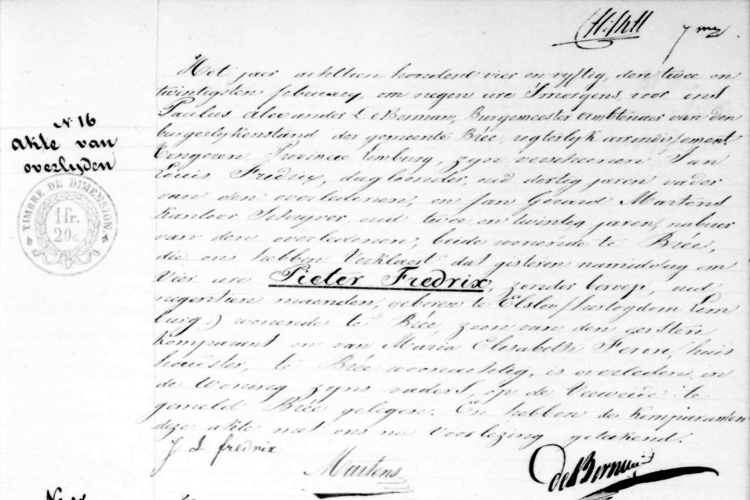 7 me
N 16
Akte van
overlyden
TIMBRE DE DIMENSION
1 fr.
20 c.
Het jaer achttien honderd vier en vyftig, den twee en
twintigsten february, om negen ure Smorgens, voor ons
Paulus Alexander DeBorman, Burgemeester Ambtenaer van den
burgerlykenstand der gemeente Brée, regterlyk arrondissement
Tongeren, Provincie Limburg, zyn verschenen Jan
Louis Fredrix, daglooner, oud dertig jaren vader
van den overledenen; en Jan Gerard Martens
kantoor Schryver oud twee en twintig jaren, nabuer
van den overledenen; beide wonende te Brée,
die ons hebben Verklaert dat gisteren namiddag om
Vier ure Pieter Fredrix, zonder beroep, oud
negentien maanden, geboren te Elsloo (hertogdom Lim
burg.) wonende te Brée, zoon van den eersten
Komparant en van Maria Elisabeth huis
houdster, te Brée woonachtig, is overleden in
de Woning zyns vaders, op de te
gemeld Brée gelegen. En hebben de Komparanten
deze akte met ons na Voorlezing geteekend.
J L fredrix
Martens
deBorman